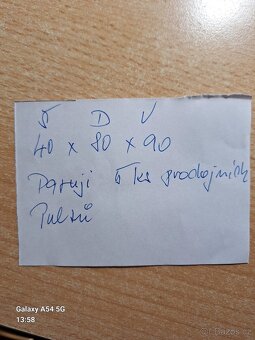 Š D V
40 x 80 x 90
Daruji 5 ks prodejních
Pultů
Galaxy A54 5G
13:58